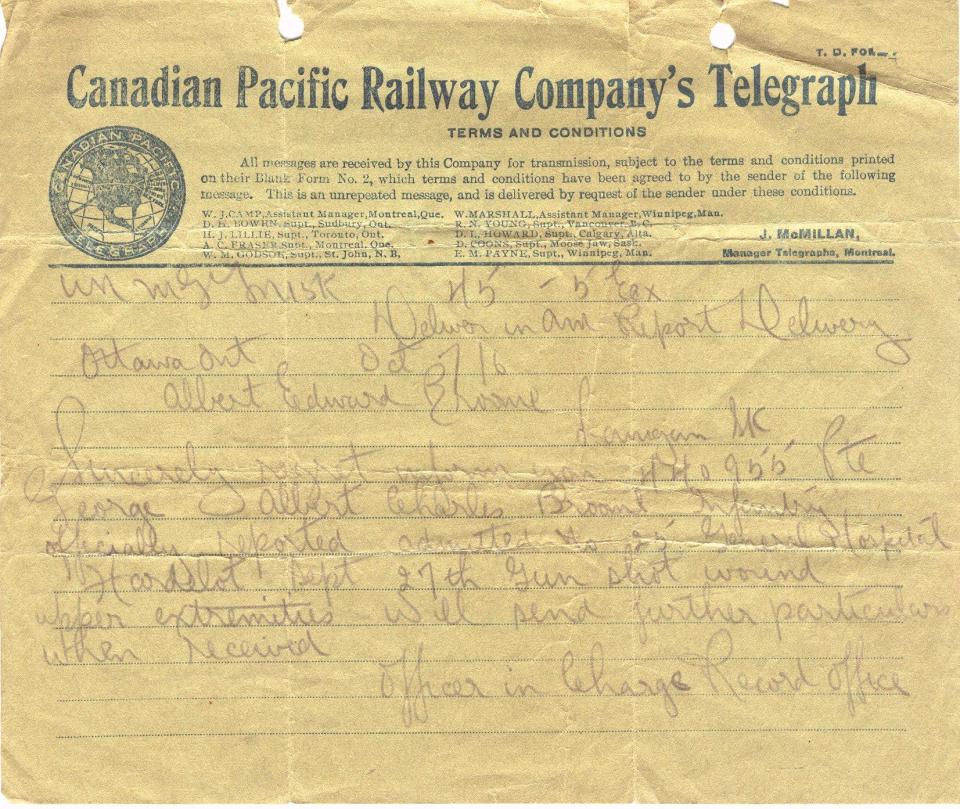 T. D. FOR
Canadian Pacific Railway Company's Telegraph
TERMS AND CONDITIONS
All messages are received by this Company for transmission, subject to the terms and conditions printed
on their Blank Form No. 2, which terms and conditions have been agreed to by the sender of the following
message. This is an unrepeated message, and is delivered by request of the sender under these conditions.
CANADIAN PACIFIC
TELEGRAPH
W. J. CAMP, Assistant Manager, Montreal, Que.
D. H. BOWEN, Supt., Sudbury, Ont.
H. J. LILLIE, Supt., Toronto, Ont.
A. C. FRASER, Supt., Montreal, Que.
W. M. GODSOE, Supt., St. John, N. B,
W. MARSHALL, Assistant Manager, Winnipeg, Man.
R. N. YOUNG, Supt., Vancouver B.C.
D. L. HOWARD, Supt., Calgary, Alta.
D. COONS, Supt., Moose Jaw, Sask.
E. M. PAYNE, Supt., Winnipeg, Man.
J. McMILLAN,
Manager Telegraphs, Montreal.
45 - 5
in am Report Delivery
Ottawa Ont Oct 16
Albert Edward
Lanigan SK
Sincerely regret inform you 440955 Pte
George Albert Charles Broome Infantry
officially reported admitted to General Hospital
Hardelot Sept 27th Gun shot wound
upper extremities will send further particulars
when received
Officer in Charge Record Office